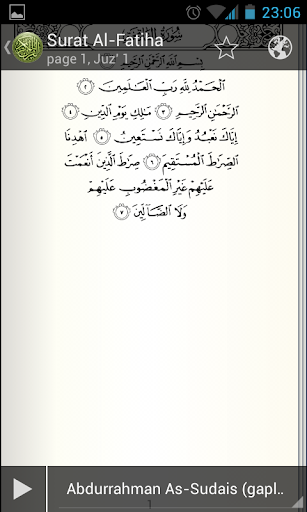 23:06
Surat Al-Fatiha
page 1, Juz' 1
بِسْمِ ٱللَّهِ ٱلرَّحْمَٰنِ ٱلرَّحِيمِ
ٱلْحَمْدُ لِلَّهِ رَبِّ ٱلْعَٰلَمِينَ ٢
ٱلرَّحْمَٰنِ ٱلرَّحِيمِ ٣ مَٰلِكِ يَوْمِ ٱلدِّينِ ٤
إِيَّاكَ نَعْبُدُ وَإِيَّاكَ نَسْتَعِينُ ٥ ٱهْدِنَا
ٱلصِّرَٰطَ ٱلْمُسْتَقِيمَ ٦ صِرَٰطَ ٱلَّذِينَ أَنْعَمْتَ
عَلَيْهِمْ غَيْرِ ٱلْمَغْضُوبِ عَلَيْهِمْ
وَلَا ٱلضَّآلِّينَ ٧
Abdurrahman As-Sudais (gapl..
1